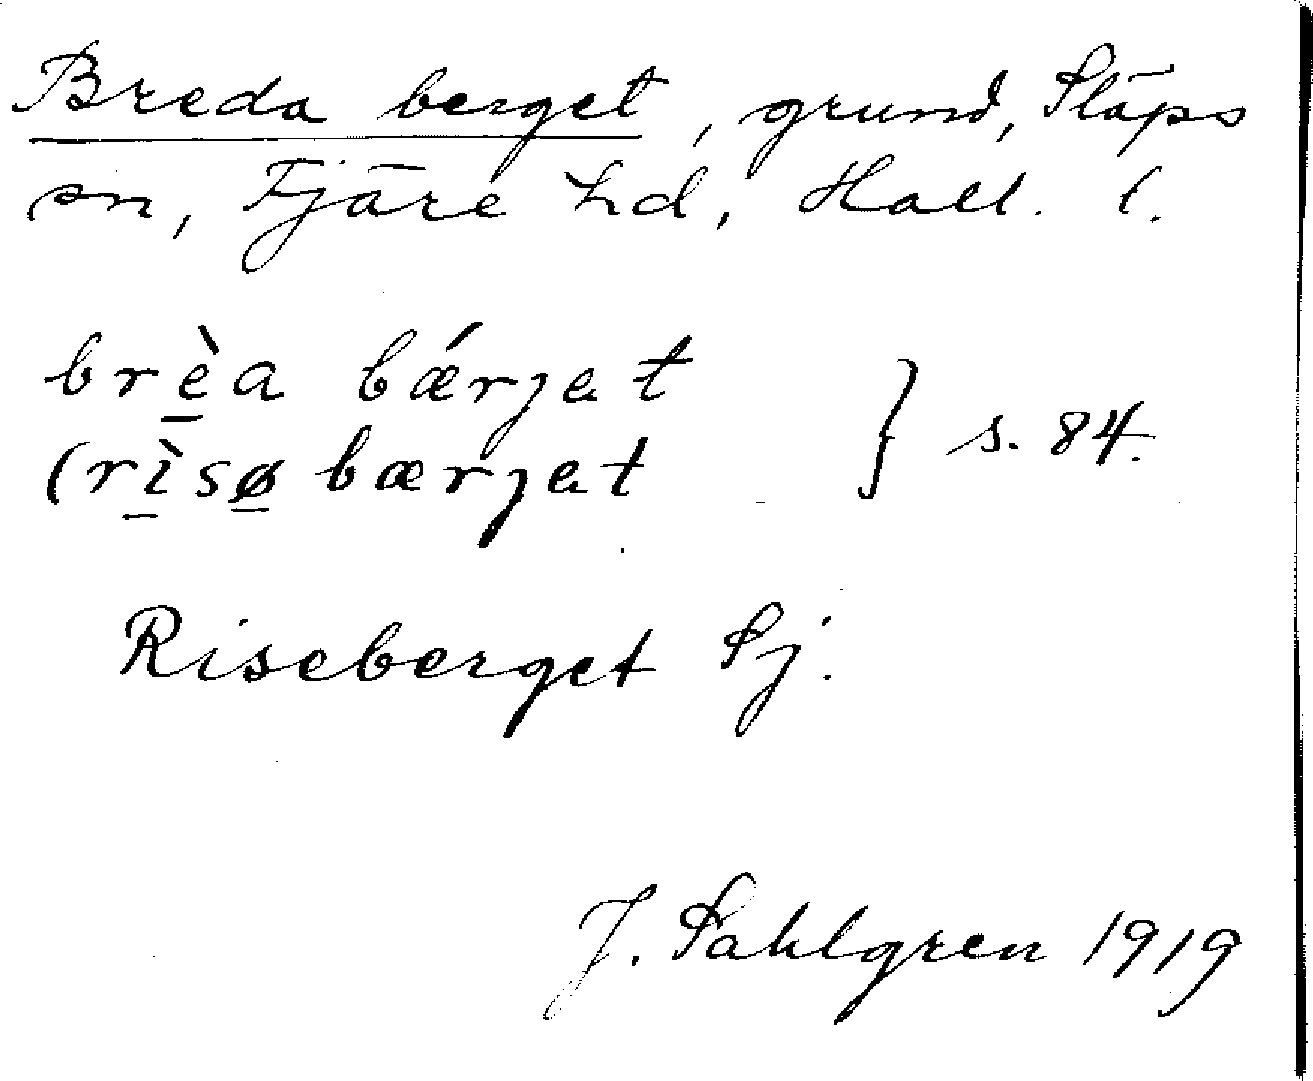 Breda berget, grund, Släps
sn, Fjäre hd, Hall. l.
brè̱a bǽrjat
(rì̱sø̱bærjat } s. 84.
Riseberget Sj.
J. Sahlgren 1919